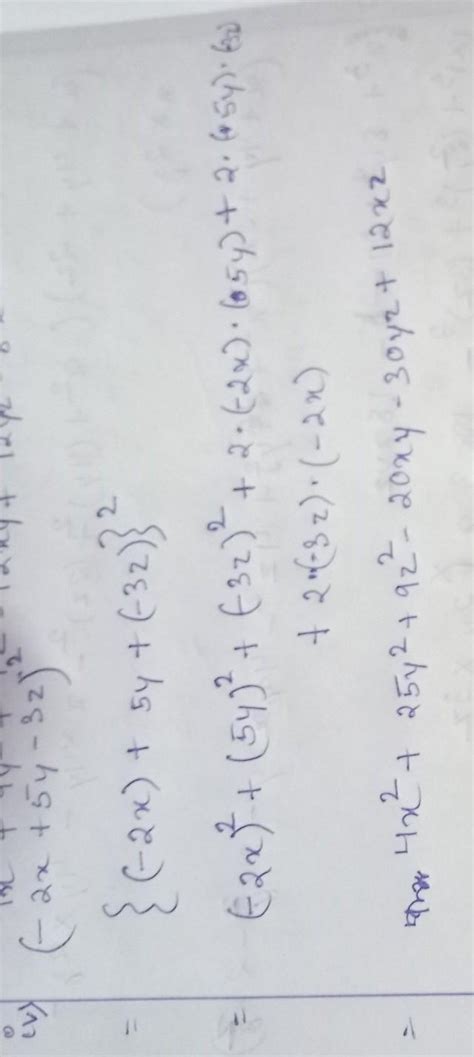 (v) (-2x + 5y - 3z)²
= {(-2x) + 5y + (-3z)}²
= (-2x)² + (5y)² + (-3z)² + 2·(-2x)·(5y) + 2·(5y)·(-3z)
+ 2·(-3z)·(-2x)
= 4x² + 25y² + 9z² - 20xy - 30yz + 12xz